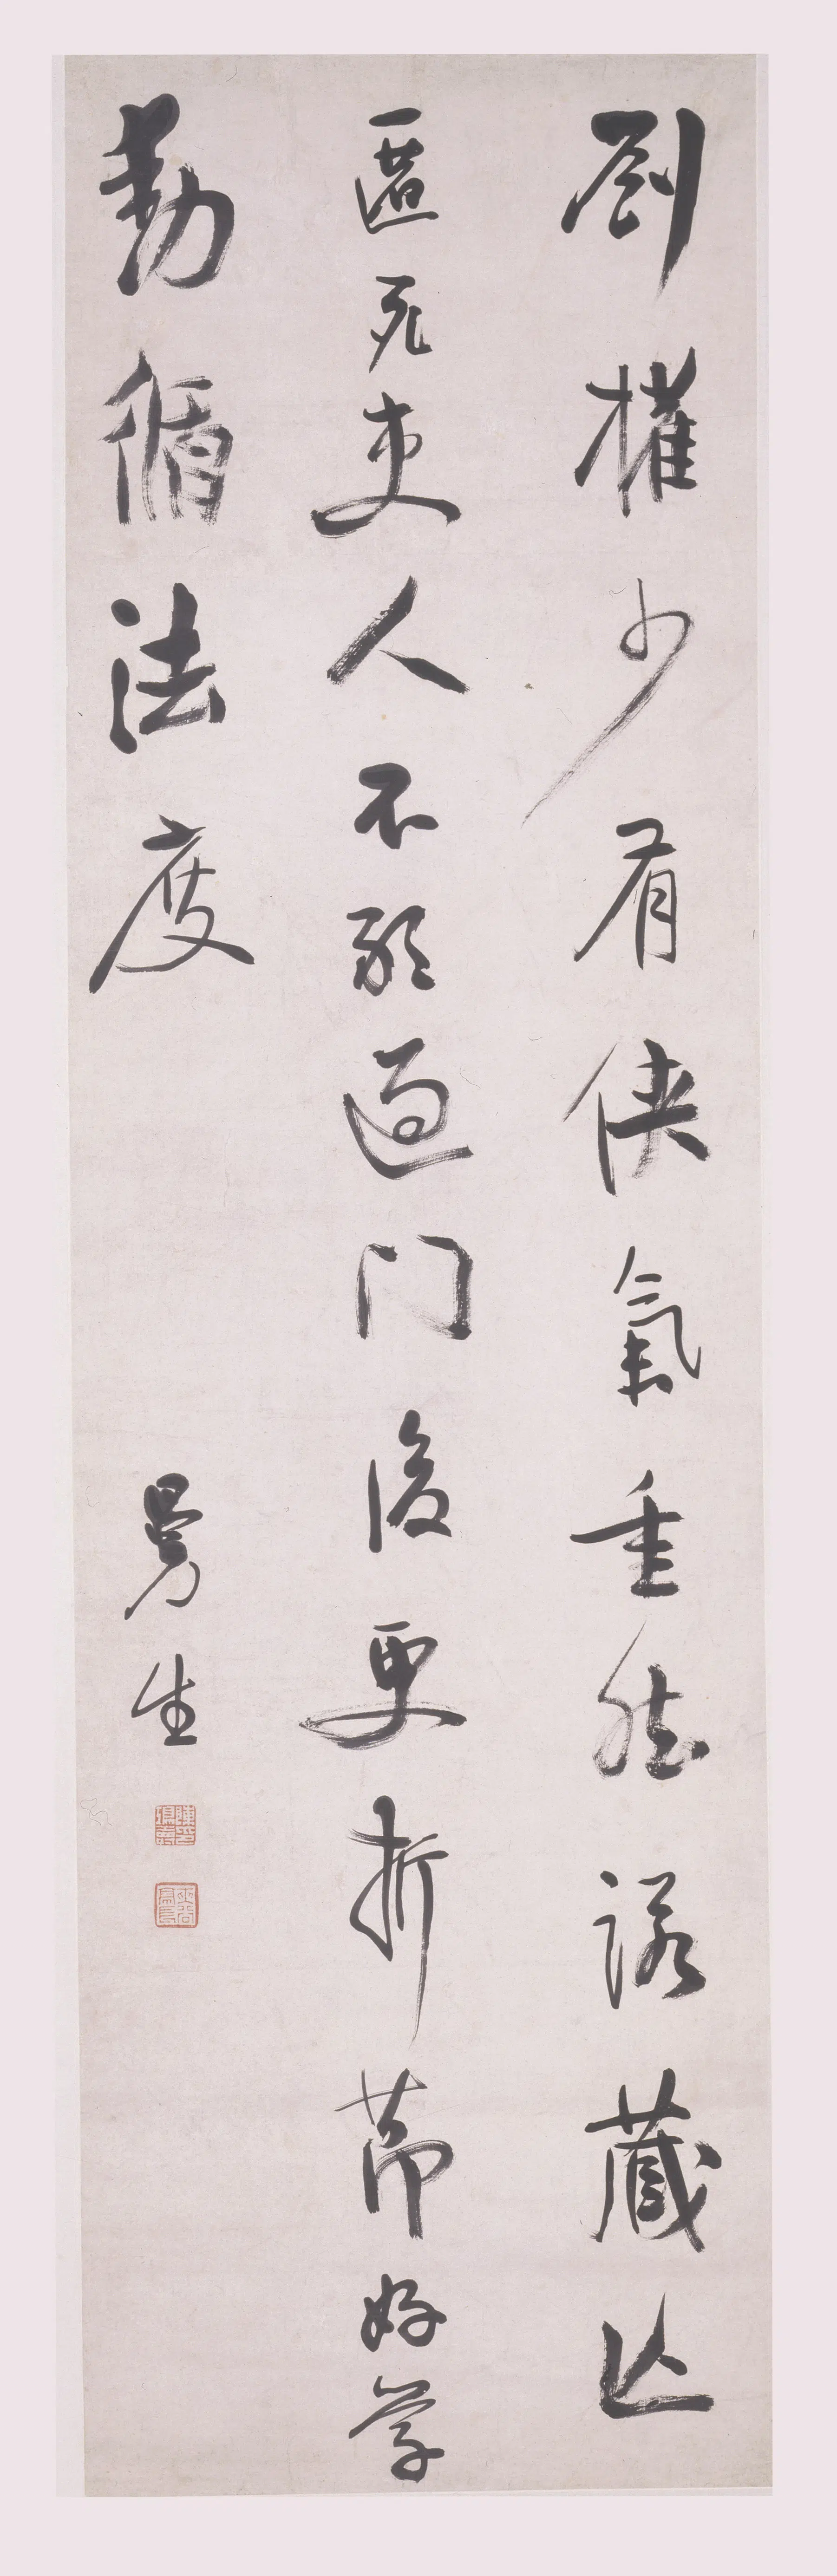 劉權少有俠氣重然諾藏亡
匿死吏人不敢過門後更折節好學
動循法度
曼生
陳鴻壽